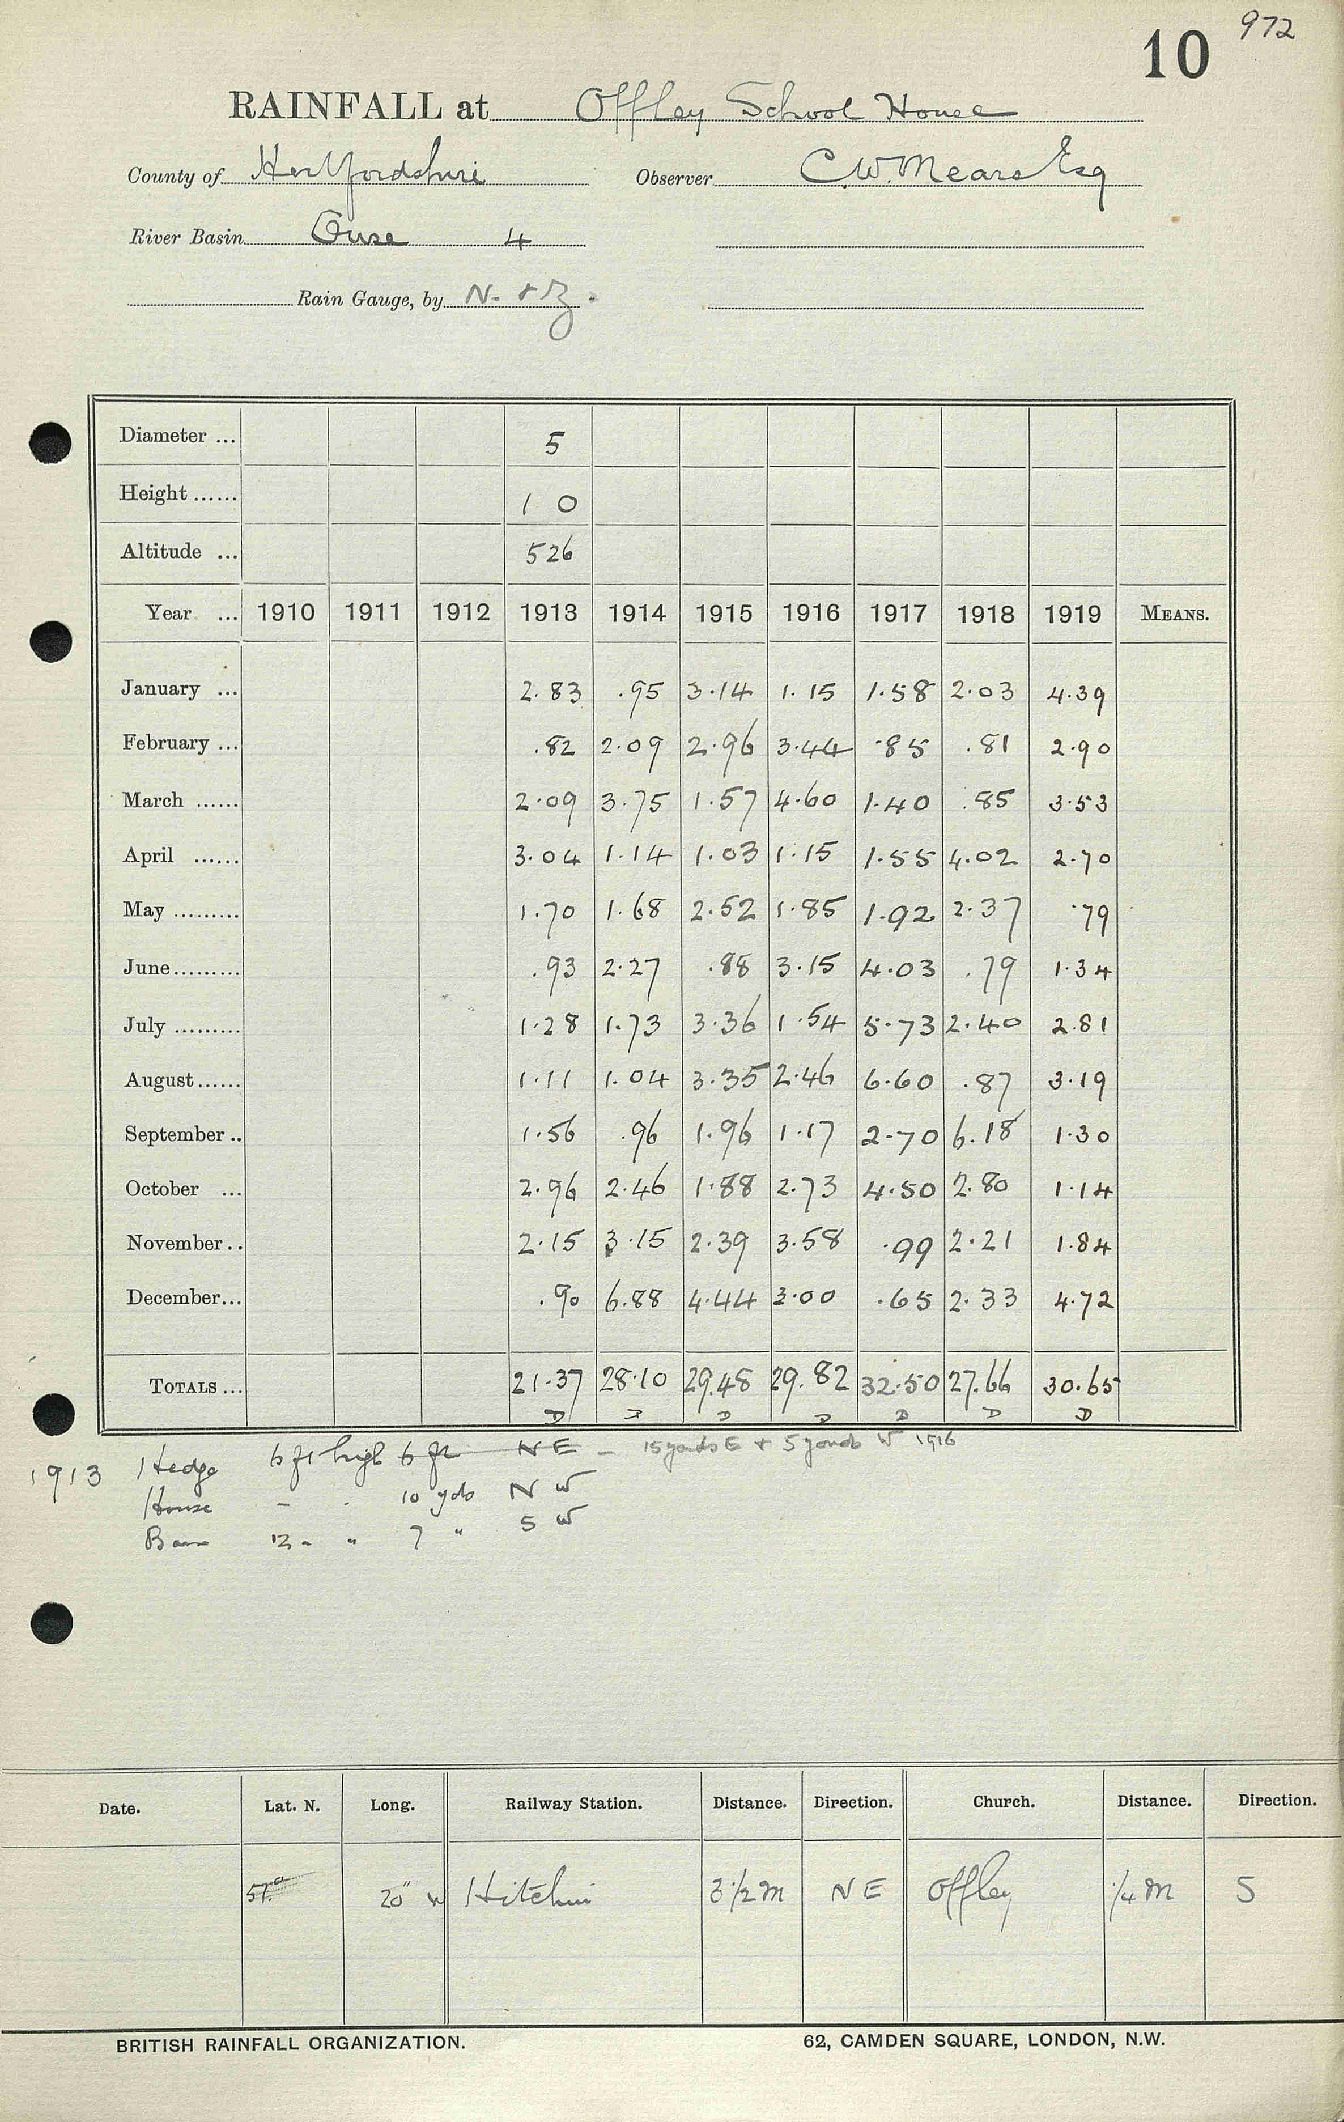 972
10
RAINFALL at Offley School House
County of Hertfordshire Observer C.W. Mears Esq
River Basin Ouse 4
Rain Gauge, by N. & Z.
Diameter ... 5
Height ...... 1 0
Altitude ... 526
Year ... 1910 1911 1912 1913 1914 1915 1916 1917 1918 1919 MEANS.
January ... 2.83 .95 3.14 1.15 1.58 2.03 4.39
February ... .82 2.09 2.96 3.44 .85 .81 2.90
March ...... 2.09 3.75 1.57 4.60 1.40 .85 3.53
April ...... 3.04 1.14 1.03 1.15 1.55 4.02 2.70
May ......... 1.70 1.68 2.52 1.85 1.92 2.37 .79
June ......... .93 2.27 .88 3.15 4.03 .79 1.34
July ......... 1.28 1.73 3.36 1.54 5.73 2.40 2.81
August ...... 1.11 1.04 3.35 2.46 6.60 .87 3.19
September .. 1.56 .96 1.96 1.17 2.70 6.18 1.30
October ... 2.96 2.46 1.88 2.73 4.50 2.80 1.14
November .. 2.15 3.15 2.39 3.58 .99 2.21 1.84
December ... .90 6.88 4.44 3.00 .65 2.33 4.72
TOTALS ... 21.37 28.10 29.48 29.82 32.50 27.66 30.65
D D D D D D D
1913 Hedge 6 ft high 6 ft NE – 15 yards E + 5 yards W 1916
House - 10 yds N W
Barn 12 - " 7 " S W
Date. Lat. N. Long. Railway Station. Distance. Direction. Church. Distance. Direction.
20" W Hitchin 3 1/2 m NE Offley 1/4 m S
BRITISH RAINFALL ORGANIZATION. 62, CAMDEN SQUARE, LONDON, N.W.